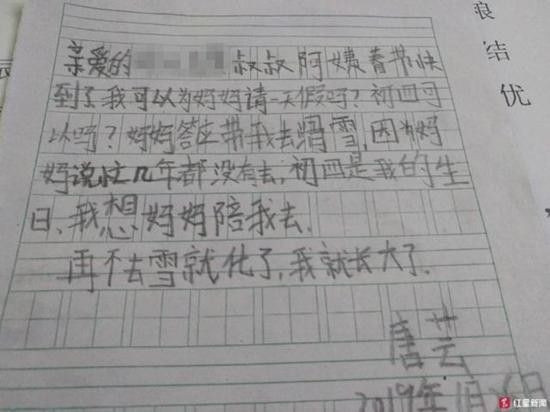 亲爱的 叔叔阿姨春节快
到了我可以为妈妈请一天假吗?初四可
以吗?妈妈答应带我去滑雪,因为妈
妈说忙几年都没有去,初四是我的生
日、我想妈妈陪我去.
再不去雪就化了,我就长大了.
唐芸
2019年1月 日
结
优
红星新闻